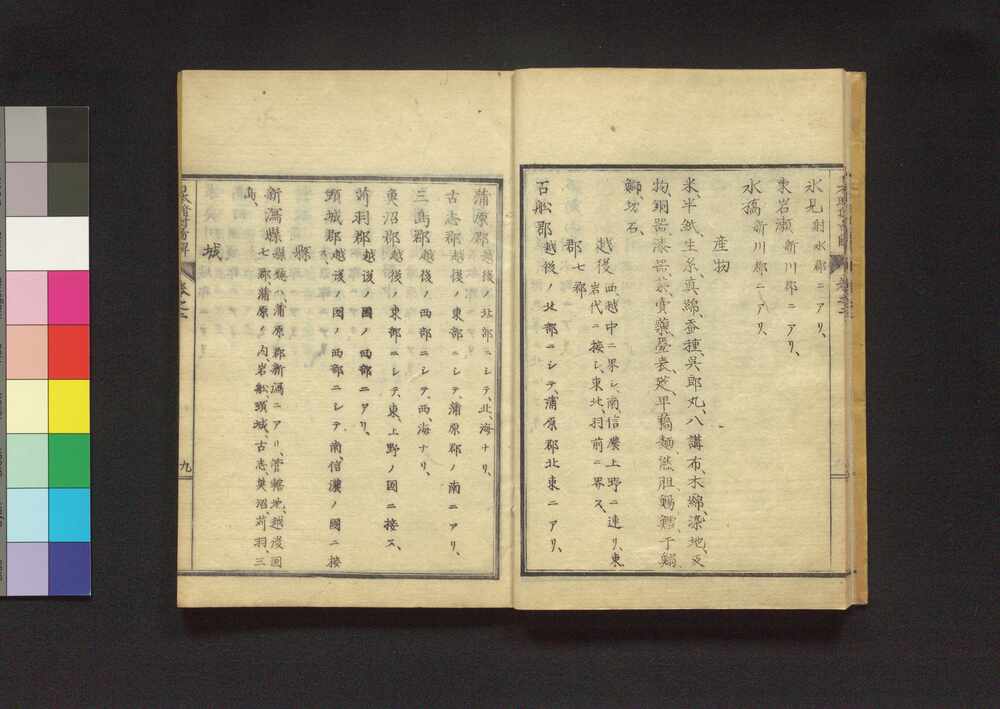 氷見射水郡ニアリ、
東岩瀬新川郡ニアリ、
水橋新川郡ニアリ、
産物
米、半紙、生糸、真綿、蚕種、呉郎丸、八講布、木綿、染地、灰
物、銅器、漆器、菅、賣藥、疊表、筵、平鞴、麺、熊胆、鰯、鱈、干鰯
鰤、坊石、
越後西越中ニ界シ、南信濃上野ニ連リ、東
岩代ニ接シ、東北、羽前ニ界ス、
郡七郡
石舩郡越後ノ北部ニシテ、蒲原郡北東ニアリ、
蒲原郡越後ノ北部ニシテ、北、海ナリ、
古志郡越後ノ東部ニシテ、蒲原郡ノ南ニアリ、
三島郡越後ノ西部ニシテ、西、海ナリ、
魚沼郡越後ノ東部ニシテ、東、上野ノ國ニ接ス、
苅羽郡越後ノ國ノ西部ニアリ、
頸城郡越後ノ國ノ西部ニシテ南、信濃ノ國ニ接
縣
新潟縣縣廳ハ、蒲原郡新潟ニアリ、管轄地、越後國
七郡蒲原ノ内、岩舩、頸城、古志、魚沼、苅羽、三
島、
城
九